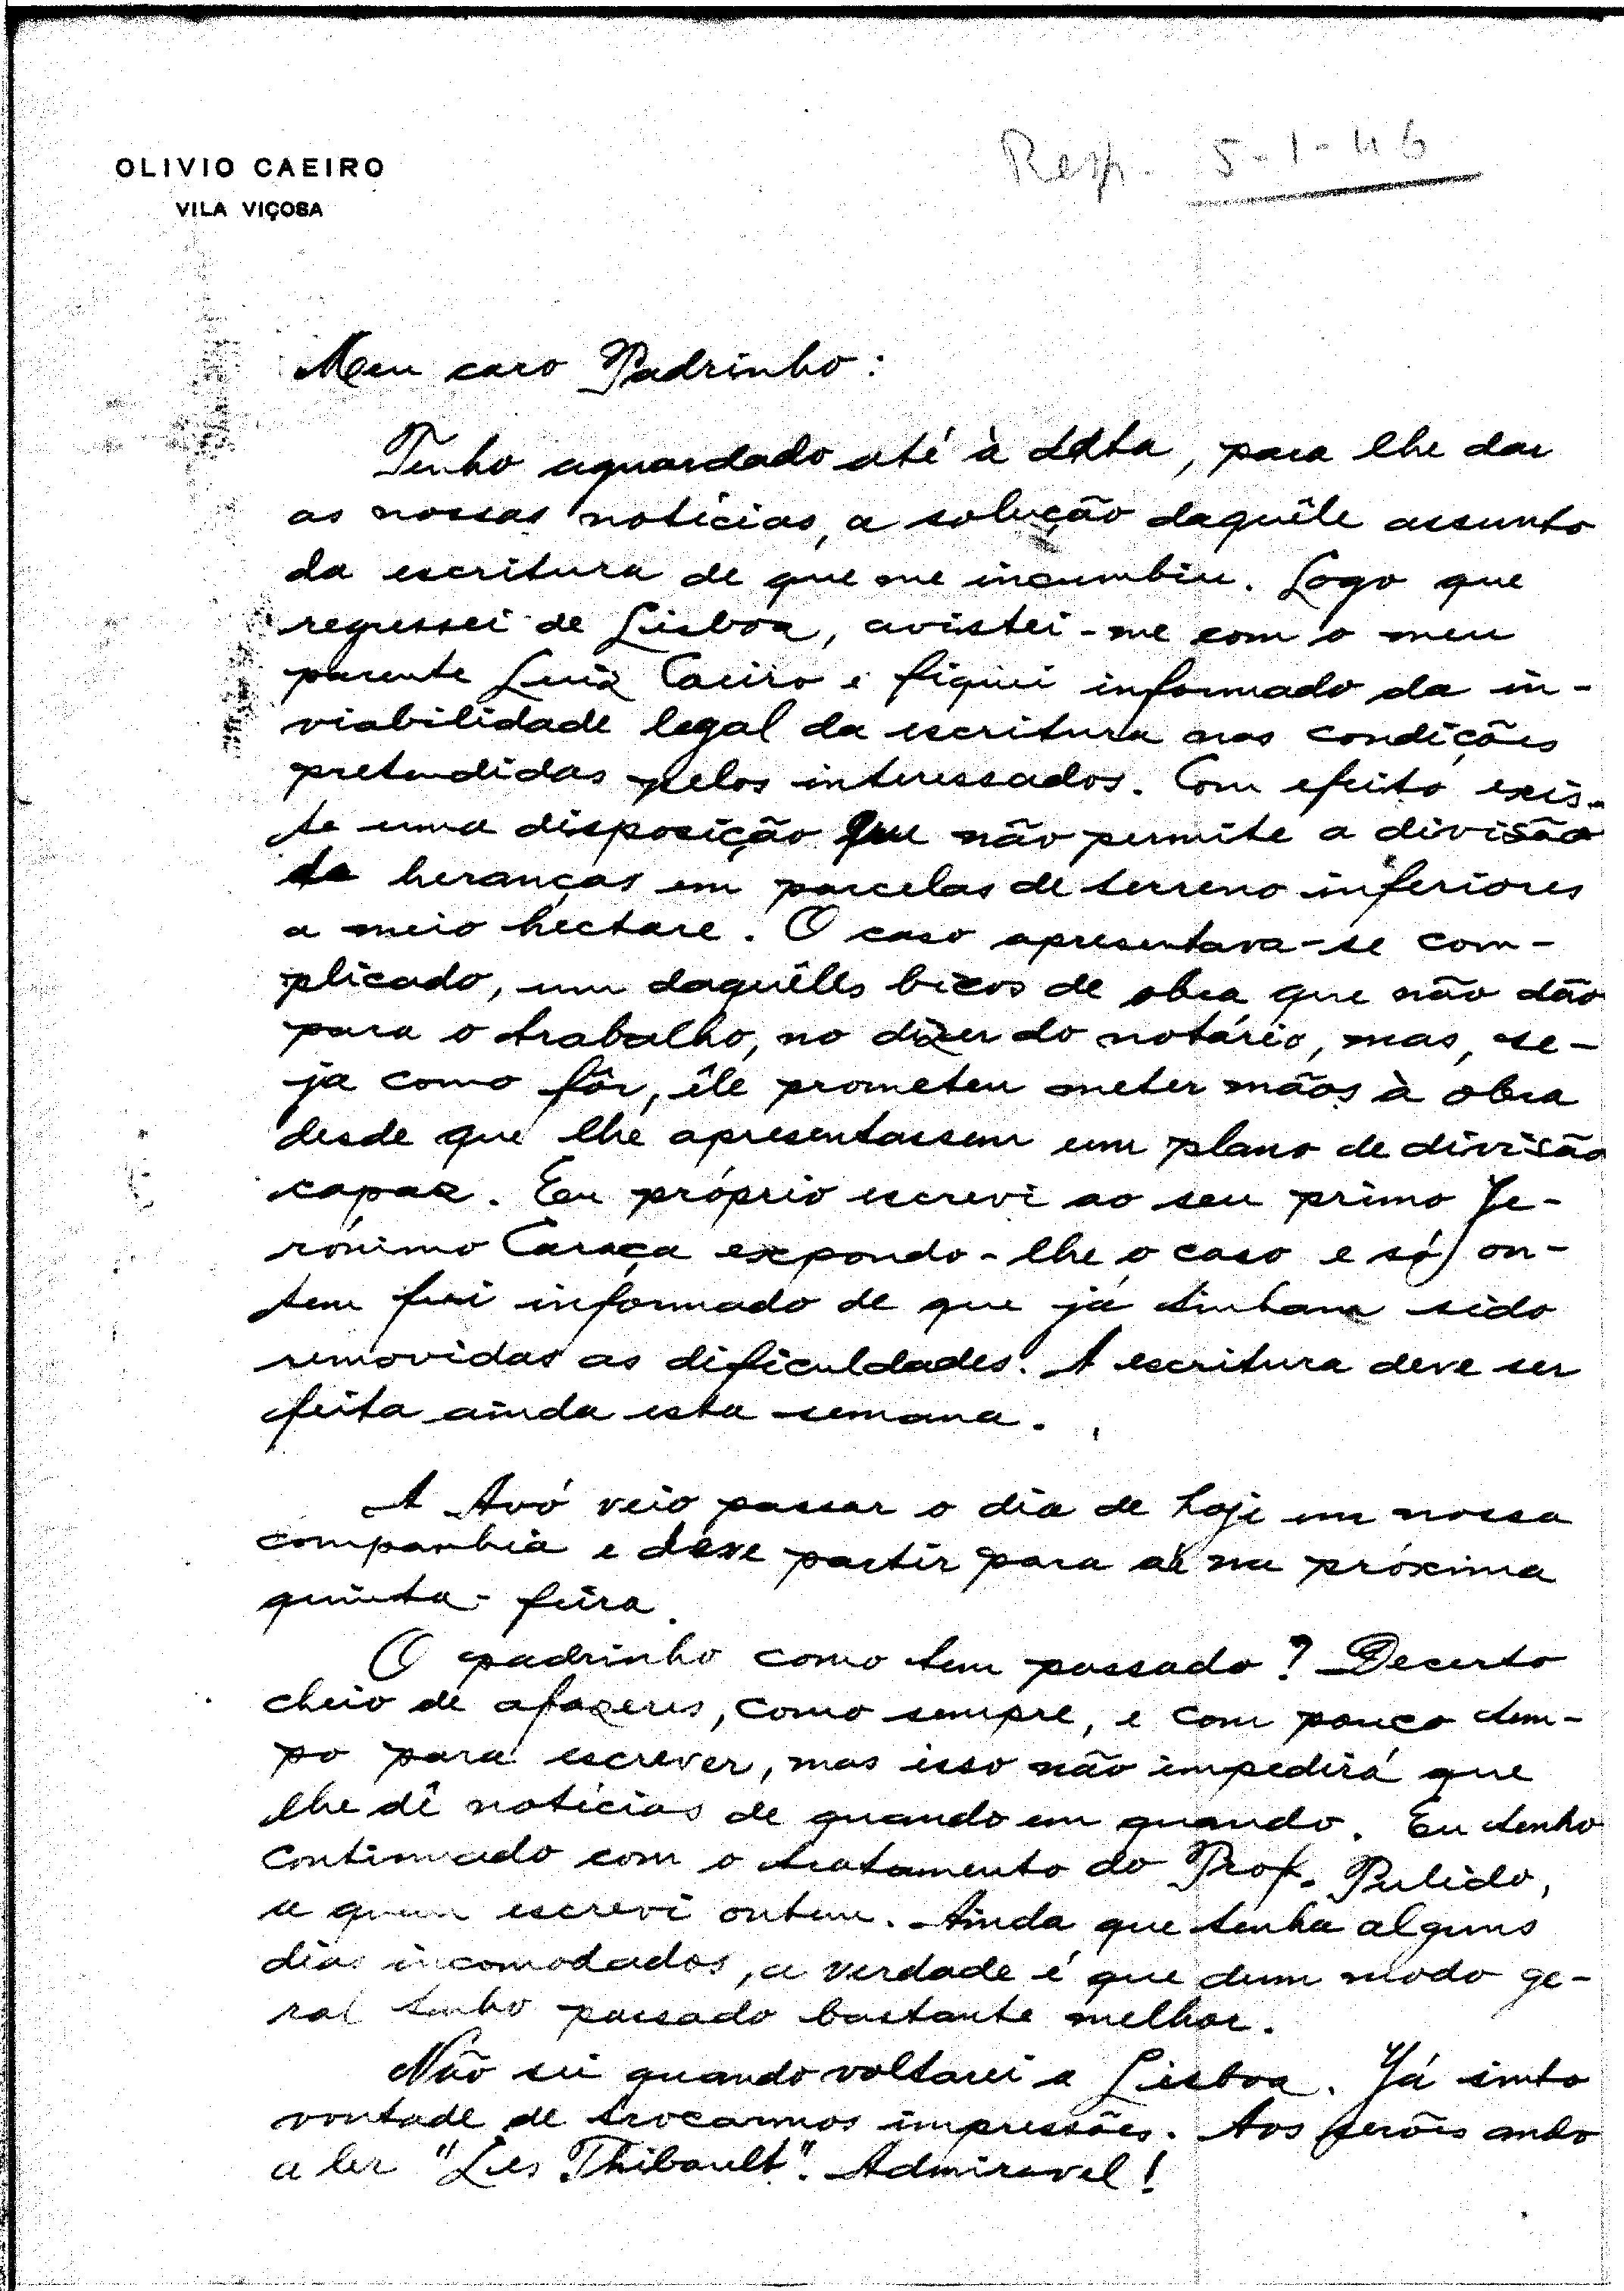 OLIVIO CAEIRO
VILA VIÇOSA
Resp. 5-1-46
Meu caro Padrinho:
Tenho aguardado até à data, para lhe dar
as nossas notícias, a solução daquêle assunto
da escritura de que me incumbiu. Logo que
regressei de Lisboa, avistei-me com o meu
parente Luiz Caeiro e fiquei informado da in-
viabilidade legal da escritura nas condições
pretendidas pelos interessados. Com efeito exis-
te uma disposição que não permite a divisão
de heranças em parcelas de terreno inferiores
a meio hectare. O caso apresentava-se com-
plicado, um daquêles bicos de obra que não dão
para o trabalho, no dizer do notário, mas, se-
ja como fôr, êle prometeu meter mãos à obra
desde que lhe apresentassem um plano de divisão
capaz. Eu próprio escrevi ao seu primo Je-
rónimo Caraça expondo-lhe o caso e só on-
tem fui informado de que já tinham sido
removidas as dificuldades. A escritura deve ser
feita ainda esta semana.
A Avó veio passar o dia de hoje em nossa
companhia e deve partir para aí na próxima
quinta-feira.
O padrinho como tem passado? Decerto
cheio de afazeres, como sempre, e com pouco tem-
po para escrever, mas isso não impedirá que
lhe dê notícias de quando em quando. Eu tenho
continuado com o tratamento do Prof. Pulido,
a quem escrevi ontem. Ainda que tenha alguns
dias incomodados, a verdade é que dum modo ge-
ral tenho passado bastante melhor.
Não sei quando voltarei a Lisboa. Já sinto
vontade de trocarmos impressões. Aos serões ando
a ler "Les Thibault". Admiravel!